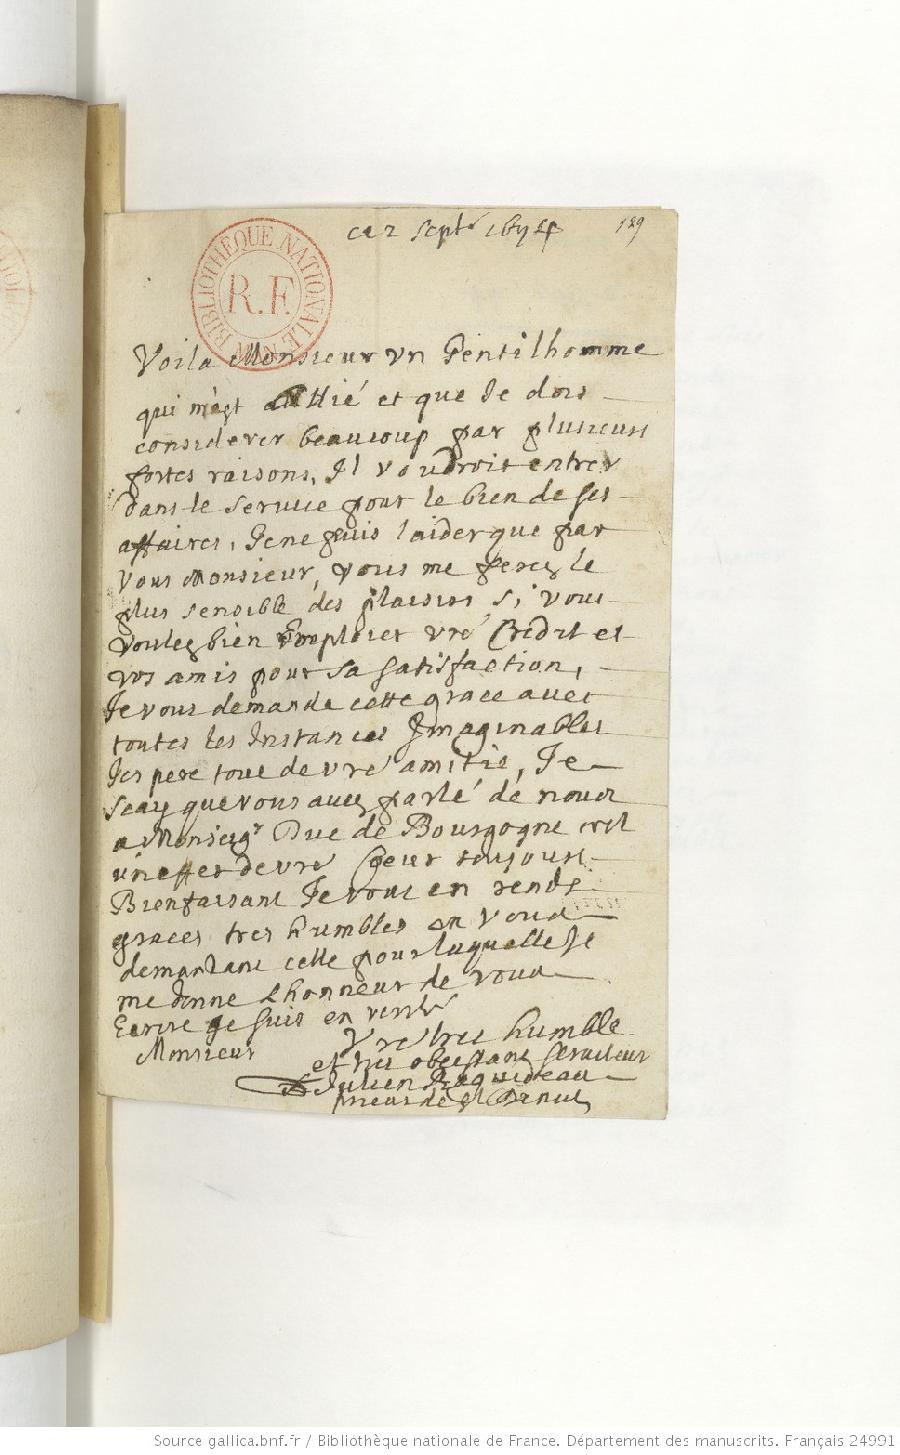 ce 2 septe 1694
129
BIBLIOTHÈQUE NATIONALE MSS
R.F.
Voila Monsieur Vn Gentilhomme
qui m'est allié et que Je dois
considerer beaucoup par plusieurs
fortes raisons, Il voudroit entrer
dans le Service pour le bien de ses
affaires, Je ne puis l'aider que par
Vous Monsieur, vous me ferez le
plus sensible des plaisirs si vous
voulez bien Emploier vre Credit et
vos amis pour sa satisfaction,
Je vous demande cette grace avec
toutes les Instances Imaginables
de vre amitié, Je
scay que vous avez parlé de nous
a Monseigr Duc de Bourgogne cest
un effet de vre Coeur toujours
Bienfaisant Je vous en rends
graces tres humbles en vous
demandant celle pour laquelle Je
me donne L'honneur de vous
Ecrire Je suis en verité
Monsieur
Vre tres humble
et tres obeissant serviteur
Julien
prieur de St
Source gallica.bnf.fr / Bibliothèque nationale de France. Département des manuscrits. Français 24991